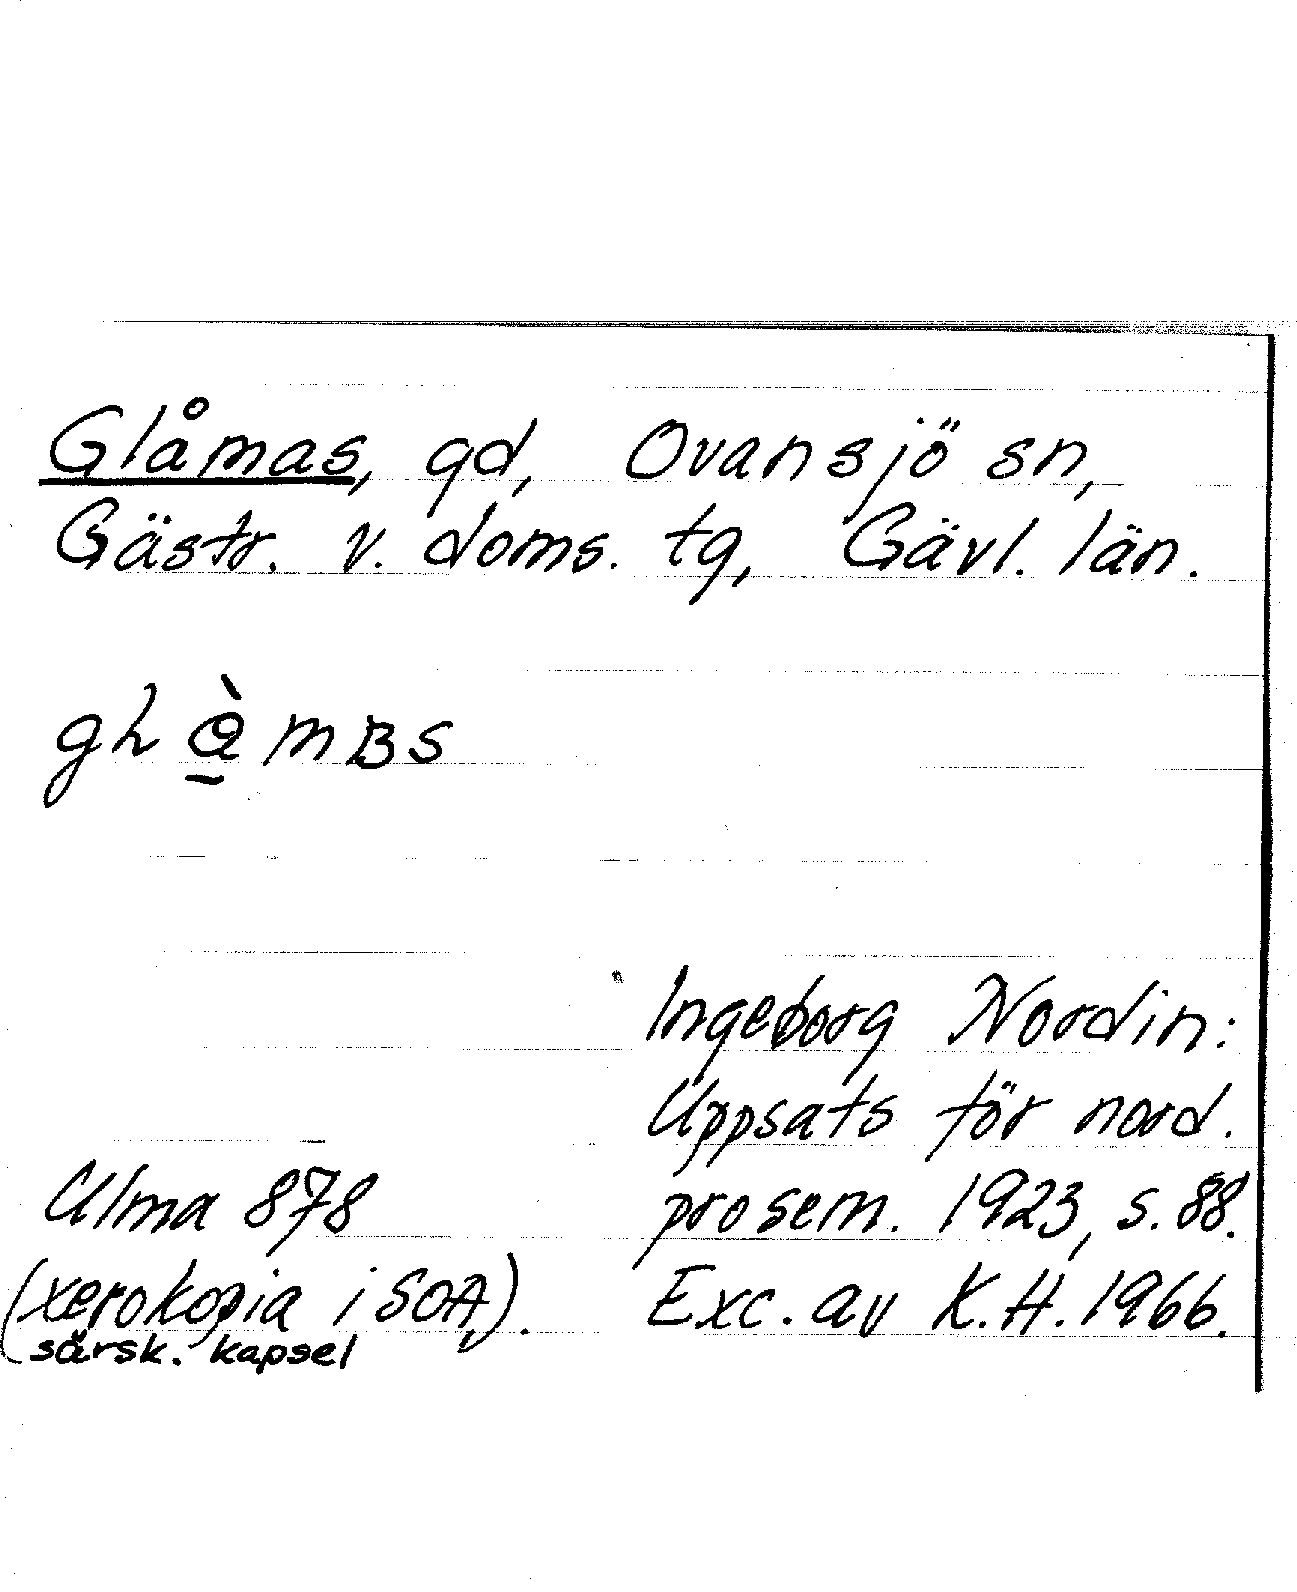 Glåmas, gd, Ovansjö sn,
Gästr. v. doms. tg, Gävl. län.
Ingeborg Nordin:
Uppsats för nord.
prosem. 1923, s. 88.
Exc. av K.H. 1966.
Ulma 878
(xerokopia i SOA,
särsk. kapsel).